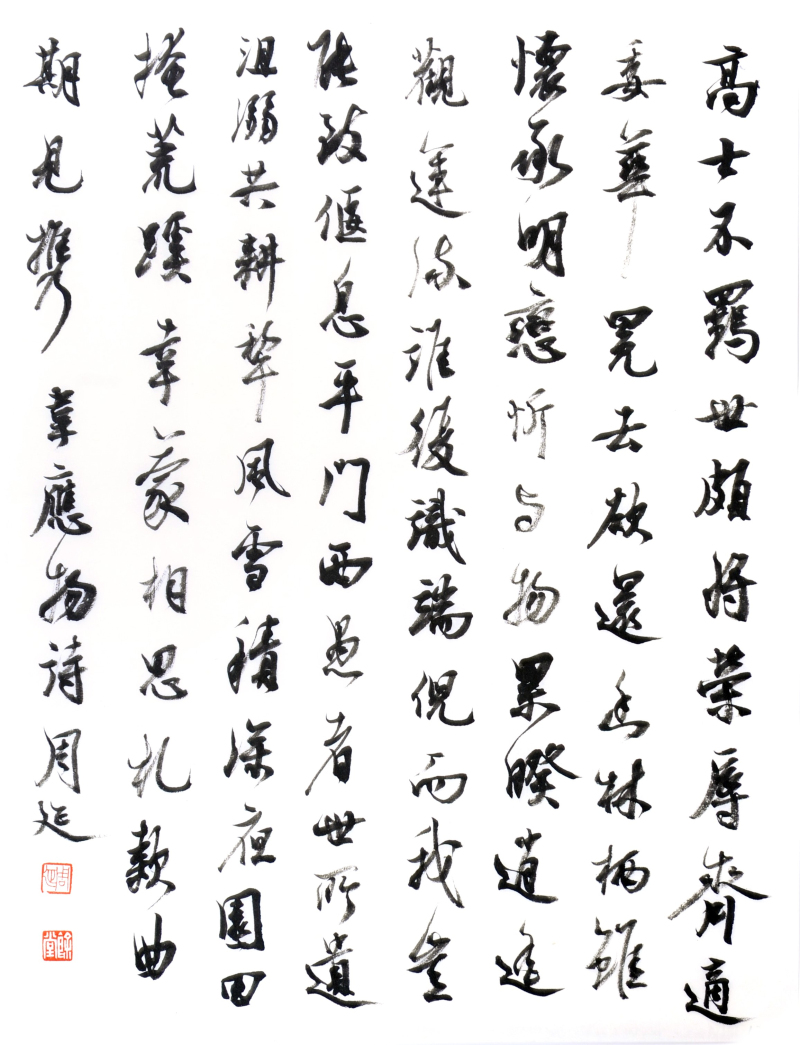 高士不羈世頗將榮辱齊適
委華冕去欲還幽林栖雖
懷承明戀忻与物累暌逍遙
觀運流誰復識端倪而我豈
致偃息平門西愚者世所遺
沮溺共耕犂風雪積深夜園田
掩荒蹊幸蒙相思札款曲
期見攜 韋應物詩周延
周延